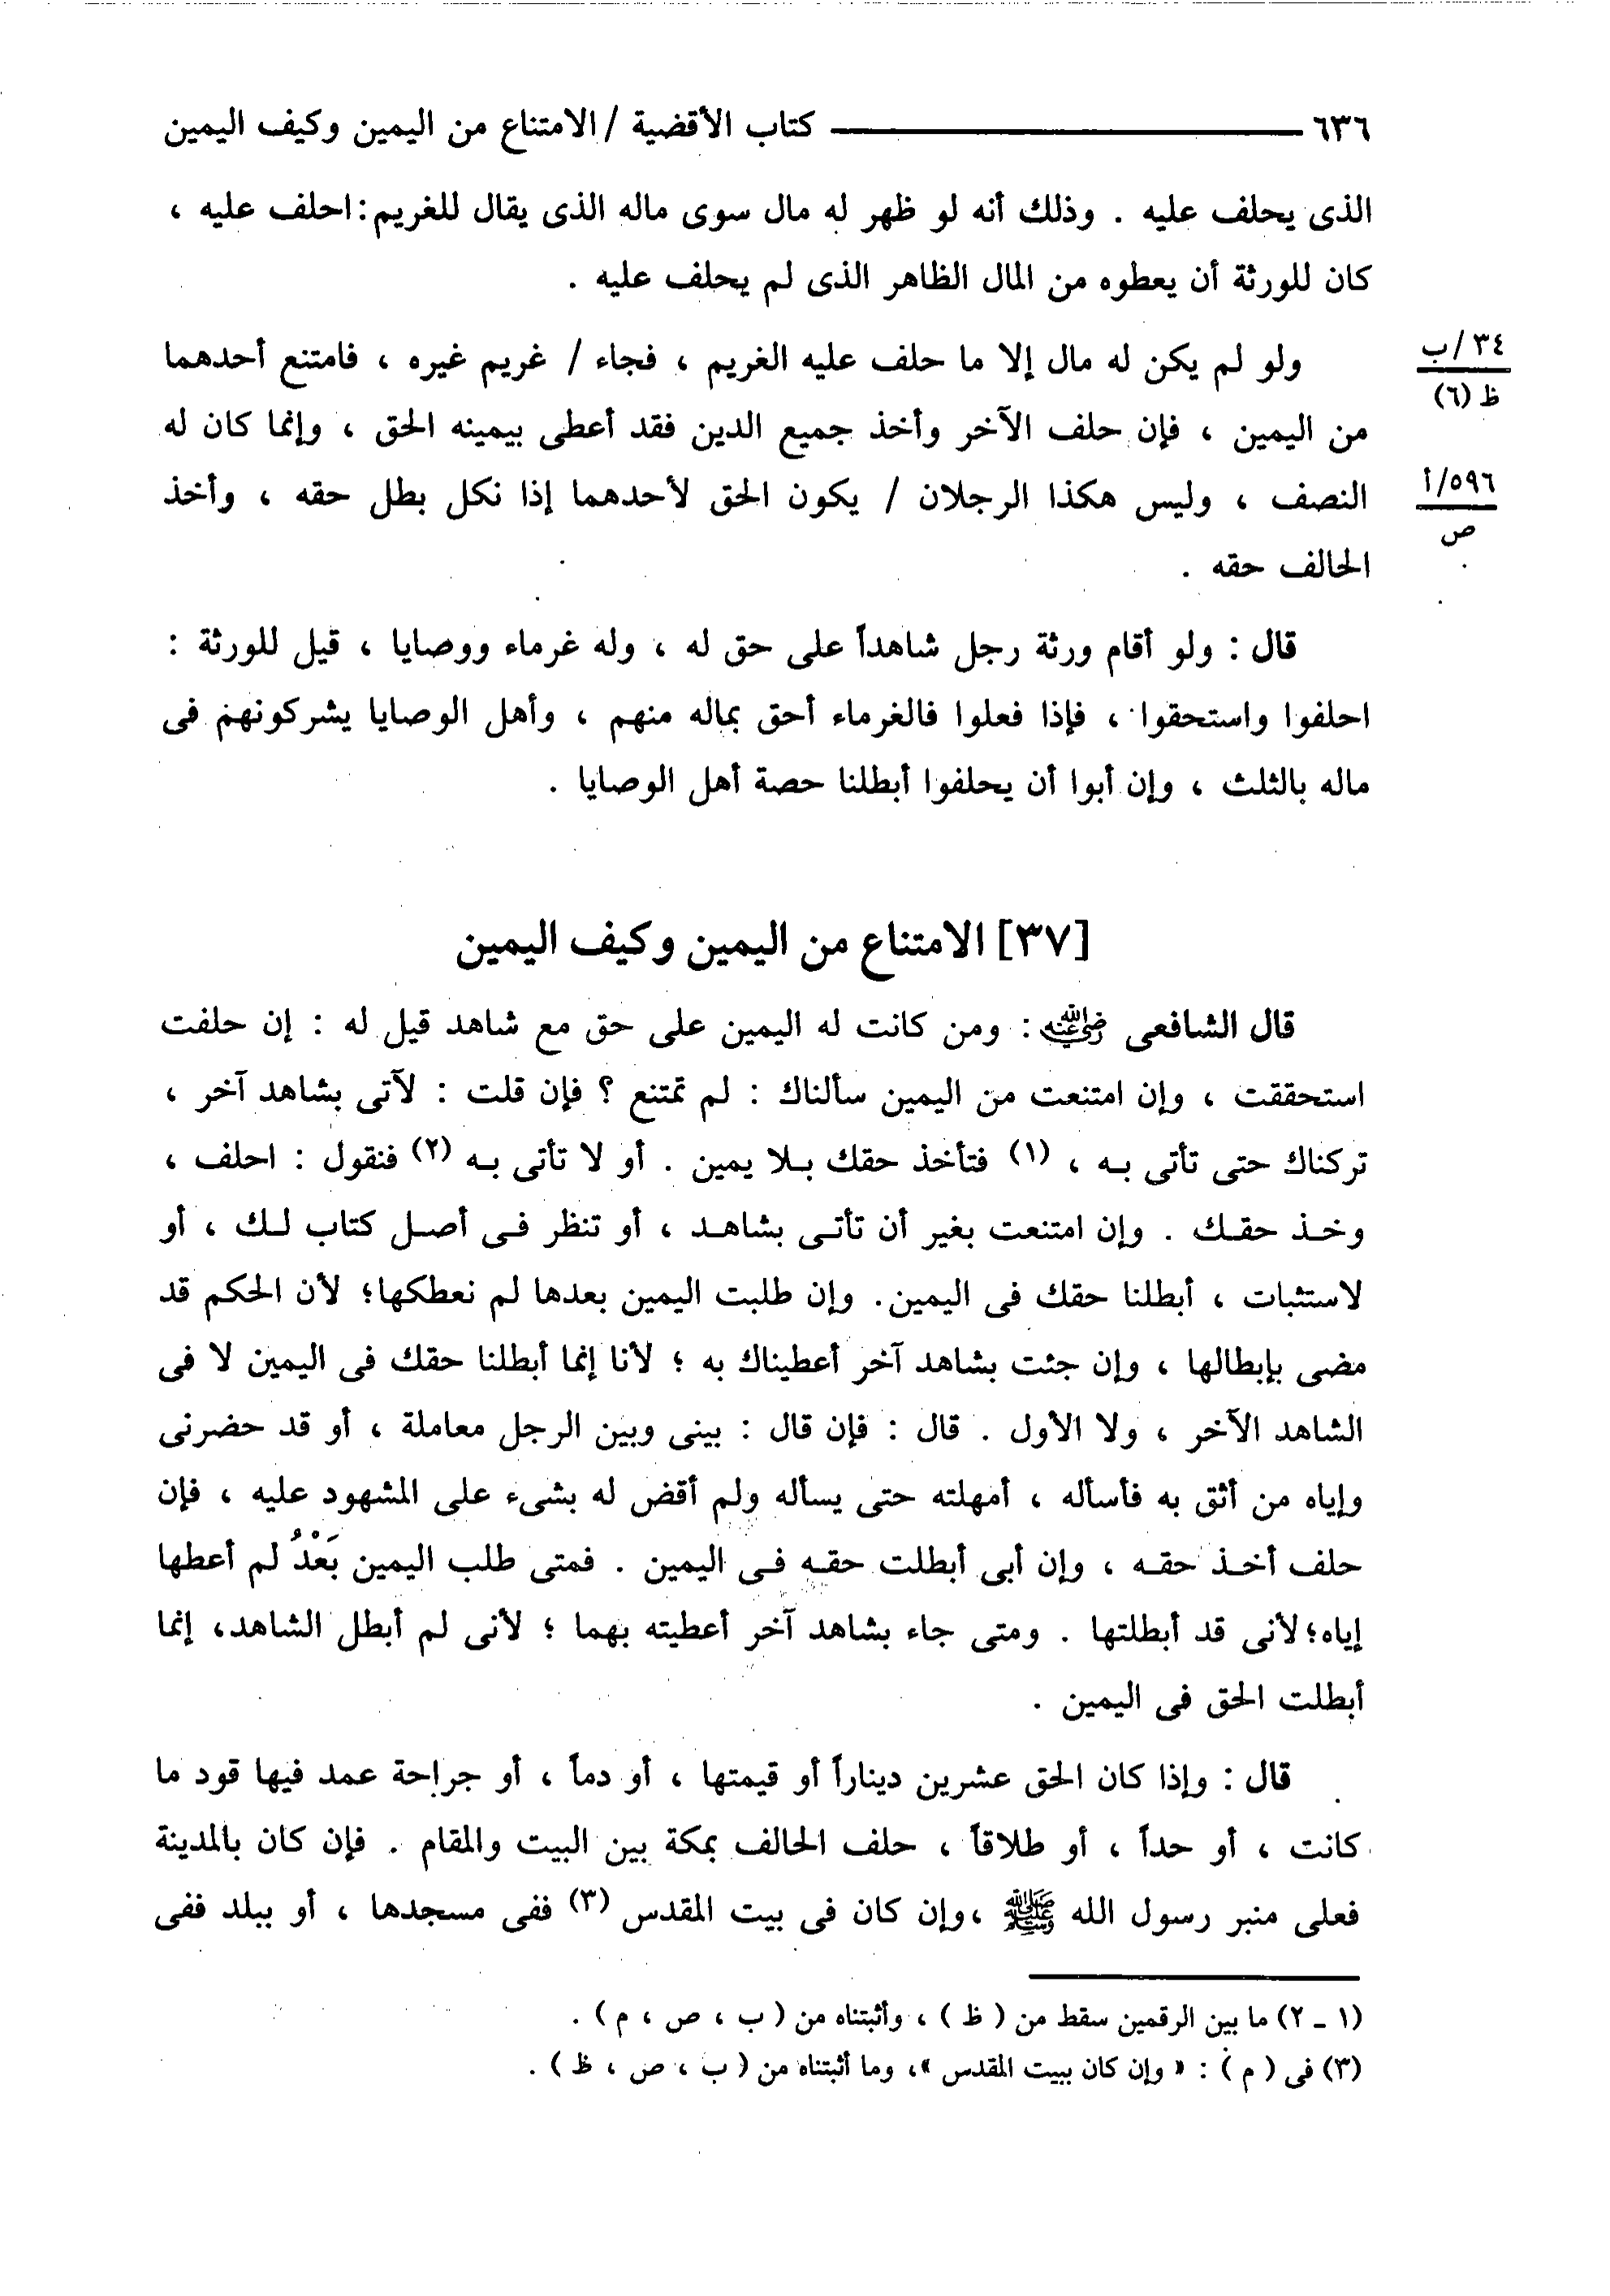 ٦٣٦ ــــــــــــــــ كتاب الأقضية / الامتناع من اليمين وكيف اليمين
الذى يحلف عليه . وذلك أنه لو ظهر له مال سوى ماله الذى يقال للغريم : احلف عليه ،
كان للورثة أن يعطوه من المال الظاهر الذى لم يحلف عليه .
ولو لم يكن له مال إلا ما حلف عليه الغريم ، فجاء / غريم غيره ، فامتنع أحدهما
٣٤/ب
ظ (٦)
من اليمين ، فإن حلف الآخر وأخذ جميع الدين فقد أعطى بيمينه الحق ، وإنما كان له
النصف ، وليس هكذا الرجلان / يكون الحق لأحدهما إذا نكل بطل حقه ، وأخذ
٥٩٦/أ
ص
الحالف حقه .
قال : ولو أقام ورثة رجل شاهداً على حق له ، وله غرماء ووصايا ، قيل للورثة :
احلفوا واستحقوا ، فإذا فعلوا فالغرماء أحق بماله منهم ، وأهل الوصايا يشركونهم فى
ماله بالثلث ، وإن أبوا أن يحلفوا أبطلنا حصة أهل الوصايا .
[٣٧] الامتناع من اليمين وكيف اليمين
قال الشافعى رضي الله عنه : ومن كانت له اليمين على حق مع شاهد قيل له : إن حلفت
استحققت ، وإن امتنعت من اليمين سألناك : لم تمتنع ؟ فإن قلت : لآتى بشاهد آخر ،
تركناك حتى تأتى به ، (١) فتأخذ حقك بلا يمين . أو لا تأتى به (٢) فنقول : احلف ،
وخذ حقك . وإن امتنعت بغير أن تأتى بشاهد ، أو تنظر فى أصل كتاب لك ، أو
لاستثبات ، أبطلنا حقك فى اليمين. وإن طلبت اليمين بعدها لم نعطكها؛ لأن الحكم قد
مضى بإبطالها ، وإن جئت بشاهد آخر أعطيناك به ؛ لأنا إنما أبطلنا حقك فى اليمين لا فى
الشاهد الآخر ، ولا الأول . قال : فإن قال : بينى وبين الرجل معاملة ، أو قد حضرنى
وإياه من أثق به فأسأله ، أمهلته حتى يسأله ولم أقض له بشىء على المشهود عليه ، فإن
حلف أخذ حقه ، وإن أبى أبطلت حقه فى اليمين . فمتى طلب اليمين بَعْدُ لم أعطها
إياه؛ لأنى قد أبطلتها . ومتى جاء بشاهد آخر أعطيته بهما ؛ لأنى لم أبطل الشاهد، إنما
أبطلت الحق فى اليمين .
قال : وإذا كان الحق عشرين ديناراً أو قيمتها ، أو دماً ، أو جراحة عمد فيها قود ما
كانت ، أو حداً ، أو طلاقاً ، حلف الحالف بمكة بين البيت والمقام . فإن كان بالمدينة
فعلى منبر رسول الله ﷺ ، وإن كان فى بيت المقدس (٣) ففى مسجدها ، أو ببلد ففى
(١ ـ ٢) ما بين الرقمين سقط من ( ظ ) ، وأثبتناه من ( ب ، ص ، م ) .
(٣) فى ( م ) : « وإن كان ببيت المقدس »، وما أثبتناه من ( ب ، ص ، ظ ) .